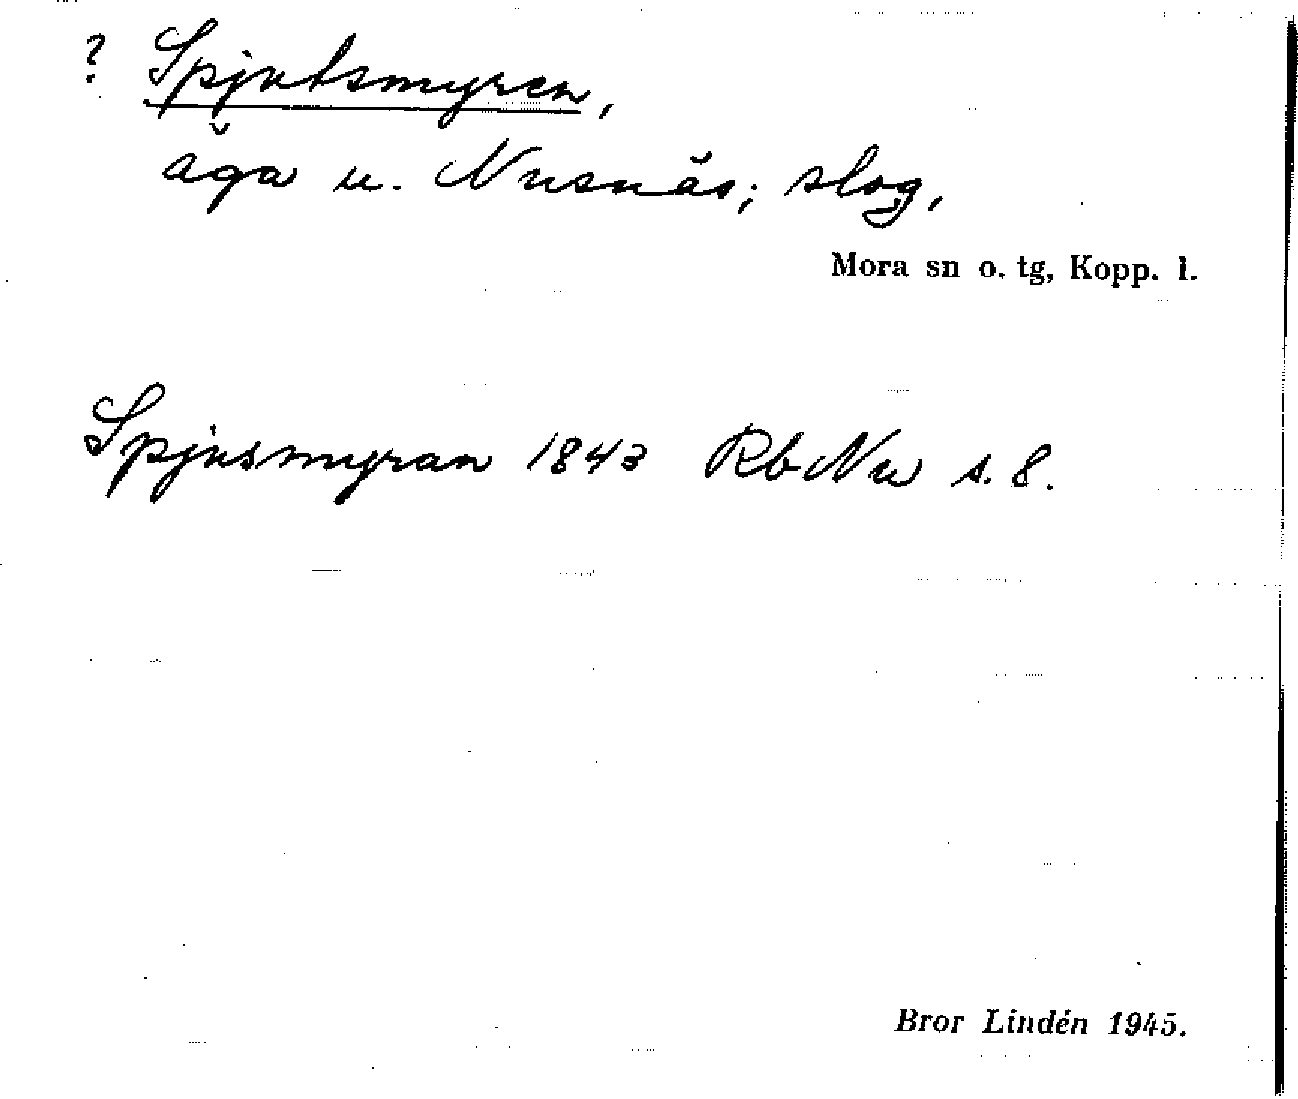 ? Spjutsmyren,
äga u. Nusnäs; slog,
Mora sn o. tg, Kopp. l.
Spjusmyran 1843 RbNu s. 8.
Bror Lindén 1945.